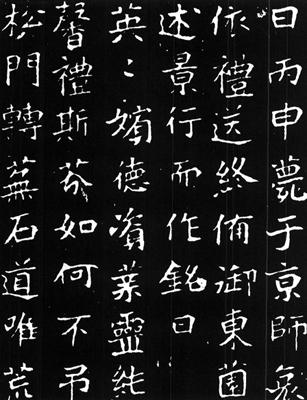 日丙申薨于京師
依禮送終備御東薗
述景行而作銘曰
英〻嬪德資業靈純
馨禮斯芬如何不弔
松門轉蕪石道唯荒